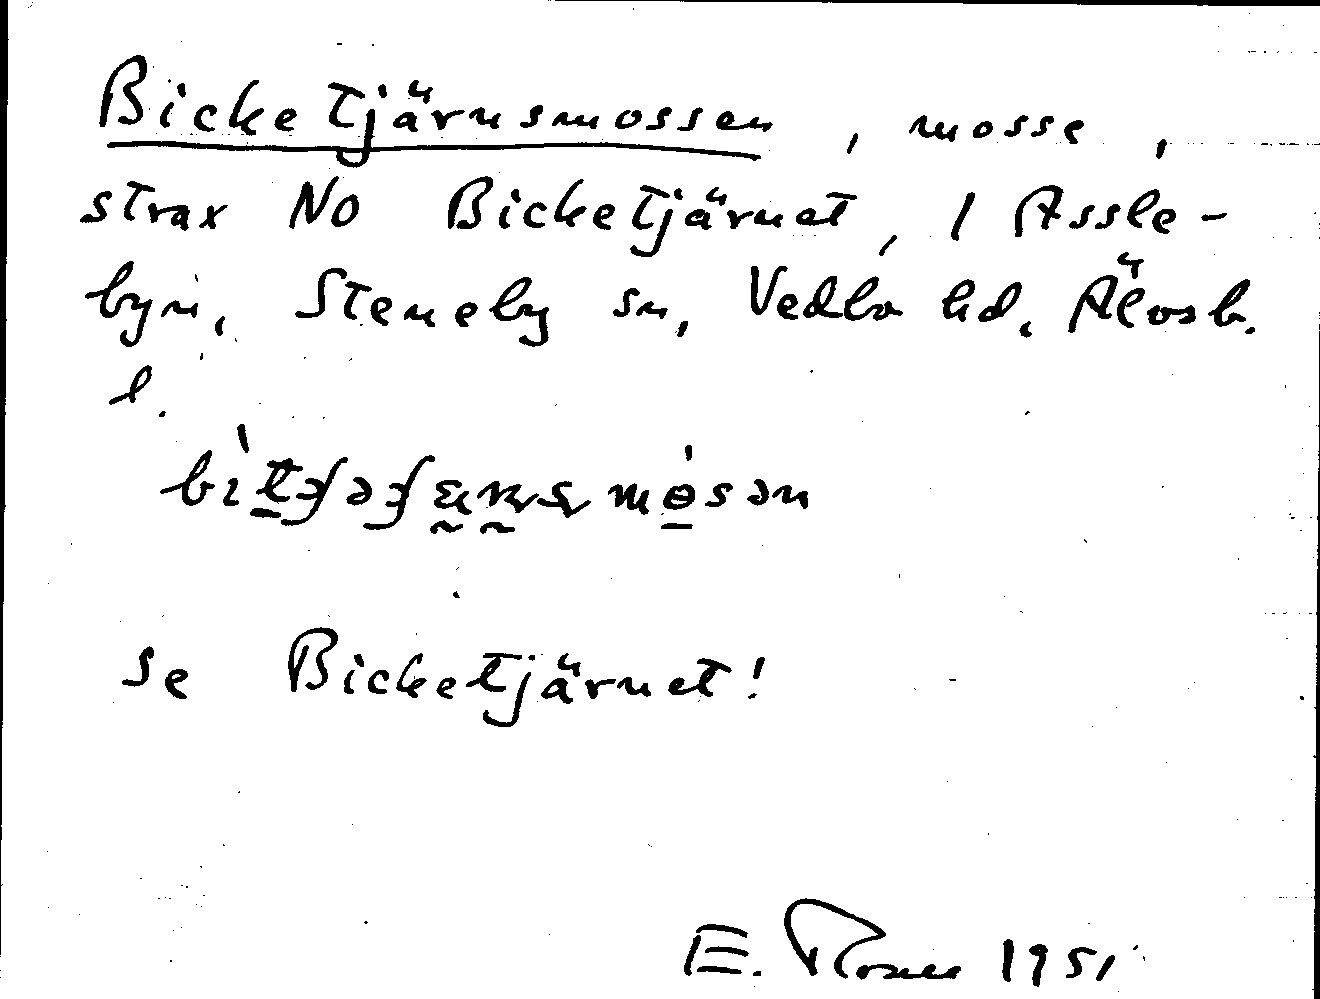 Bicketjärnsmossen, mosse,
strax NO Bicketjärnet, i Assle-
byn, Steneby sn, Vedbo hd, Älvsb.
l.
se Bicketjärnet!
E. 1951